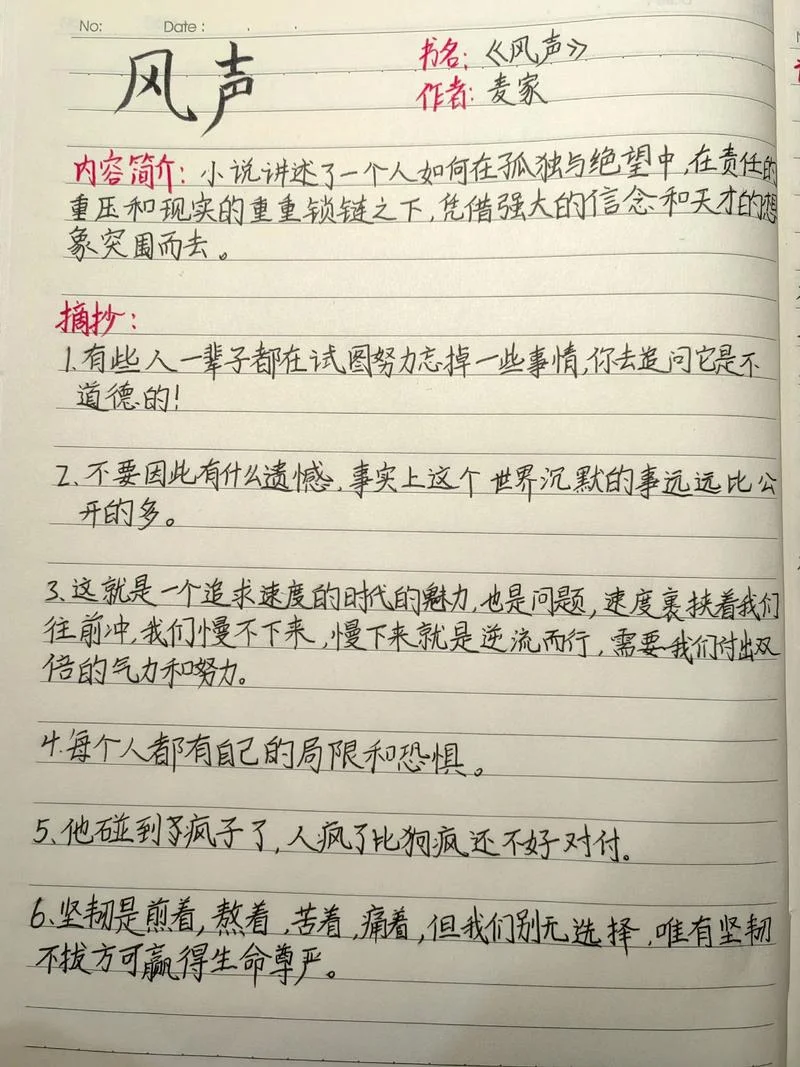 No: Date:
风声
书名:《风声》
作者:麦家
内容简介:小说讲述了一个人如何在孤独与绝望中,在责任的
重压和现实的重重锁链之下,凭借强大的信念和天才的想
象突围而去。
摘抄:
1.有些人一辈子都在试图努力忘掉一些事情,你去追问它是不
道德的!
2.不要因此有什么遗憾,事实上这个世界沉默的事远远比公
开的多。
3.这就是一个追求速度的时代的魅力,也是问题,速度裹挟着我们
往前冲,我们慢不下来,慢下来就是逆流而行,需要我们付出双
倍的气力和努力。
4.每个人都有自己的局限和恐惧。
5.他碰到了疯子了,人疯了比狗疯还不好对付。
6.坚韧是煎着,熬着,苦着,痛着,但我们别无选择,唯有坚韧
不拔方可赢得生命尊严。